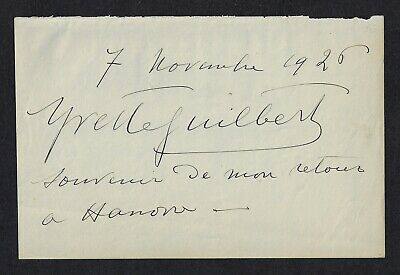 7 Novembre 1926
Yvette Guilbert
souvenir de mon retour
a Hanovre —